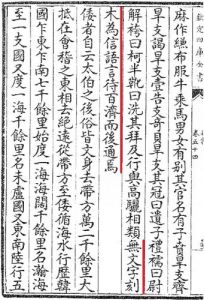 欽定四庫全書
卷五十四
麻作縑布服牛乘馬男女有別其官名有子賁旱支齊
旱支謁旱支壹告支奇貝旱支其冠曰遺子禮襦曰尉
解袴曰柯半靴曰洗其拜及行與高驪相類無文字刻
木為信語言待百濟而後通焉
倭者自云太伯之後俗皆文身去帶方萬二千餘里大
抵在會稽之東相去絕遠從帶方至倭循海水行歷韓
國乍東乍南七千餘里始度一海海闊千餘里名瀚海
至一支國又度一海千餘里名未盧國又東南陸行五